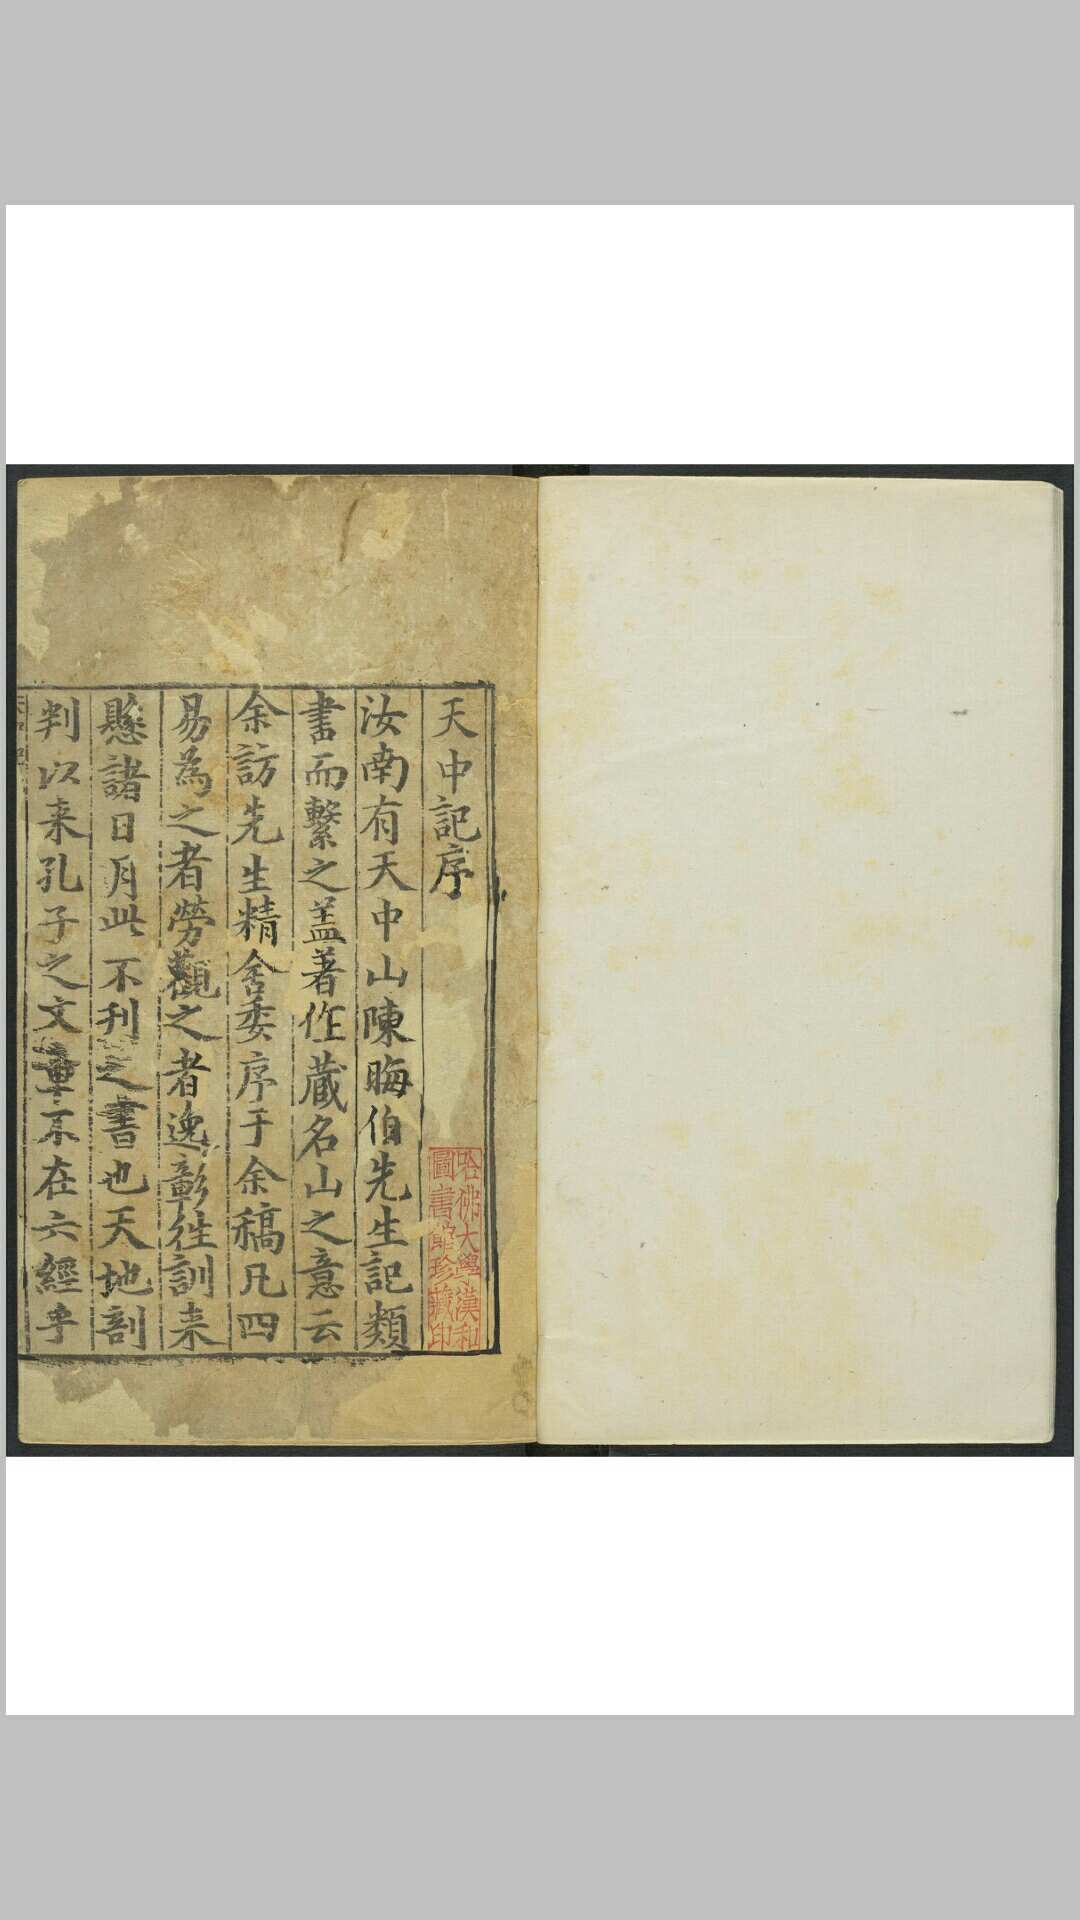 天中記序
汝南有天中山陳晦伯先生記類
書而繫之蓋著作蔵名山之意云
余訪先生精舍委序于余稿凡四
易為之者勞觀之者逸彰徃訓来
懸諸日月此不刊之書也天地剖
判以来孔子之文章不在六經乎
哈佛大學漢和
圖書館珍藏印